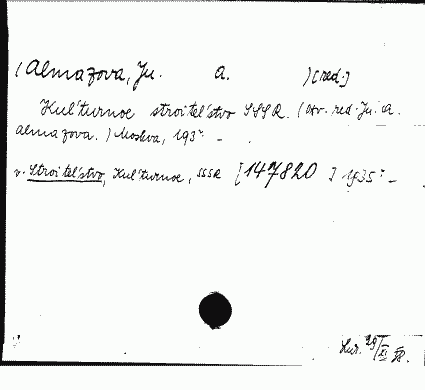 (Almazova, Ju. A. ) [red.]
Kul'turnoe stroitel'stvo SSSR. (Otv. red. Ju. A.
Almazova.) Moskva, 193 . –
v. Stroitel'stvo, Kul'turnoe, SSSR [147820] 1935 –
29/XI